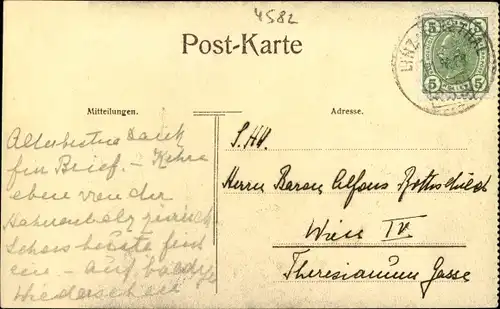 4582
Post-Karte
LINZ
5 5
5 5
Mitteilungen.
Adresse.
Allerbesten Dank
für Brief. – Kehre
eben von der
Hahnenbalz zurück
Schon heute fünf
ein – auf baldiges
Wiedersehen
S.H.
Herrn Baron Alfons Rothschild
Wien IV
Theresianum Gasse